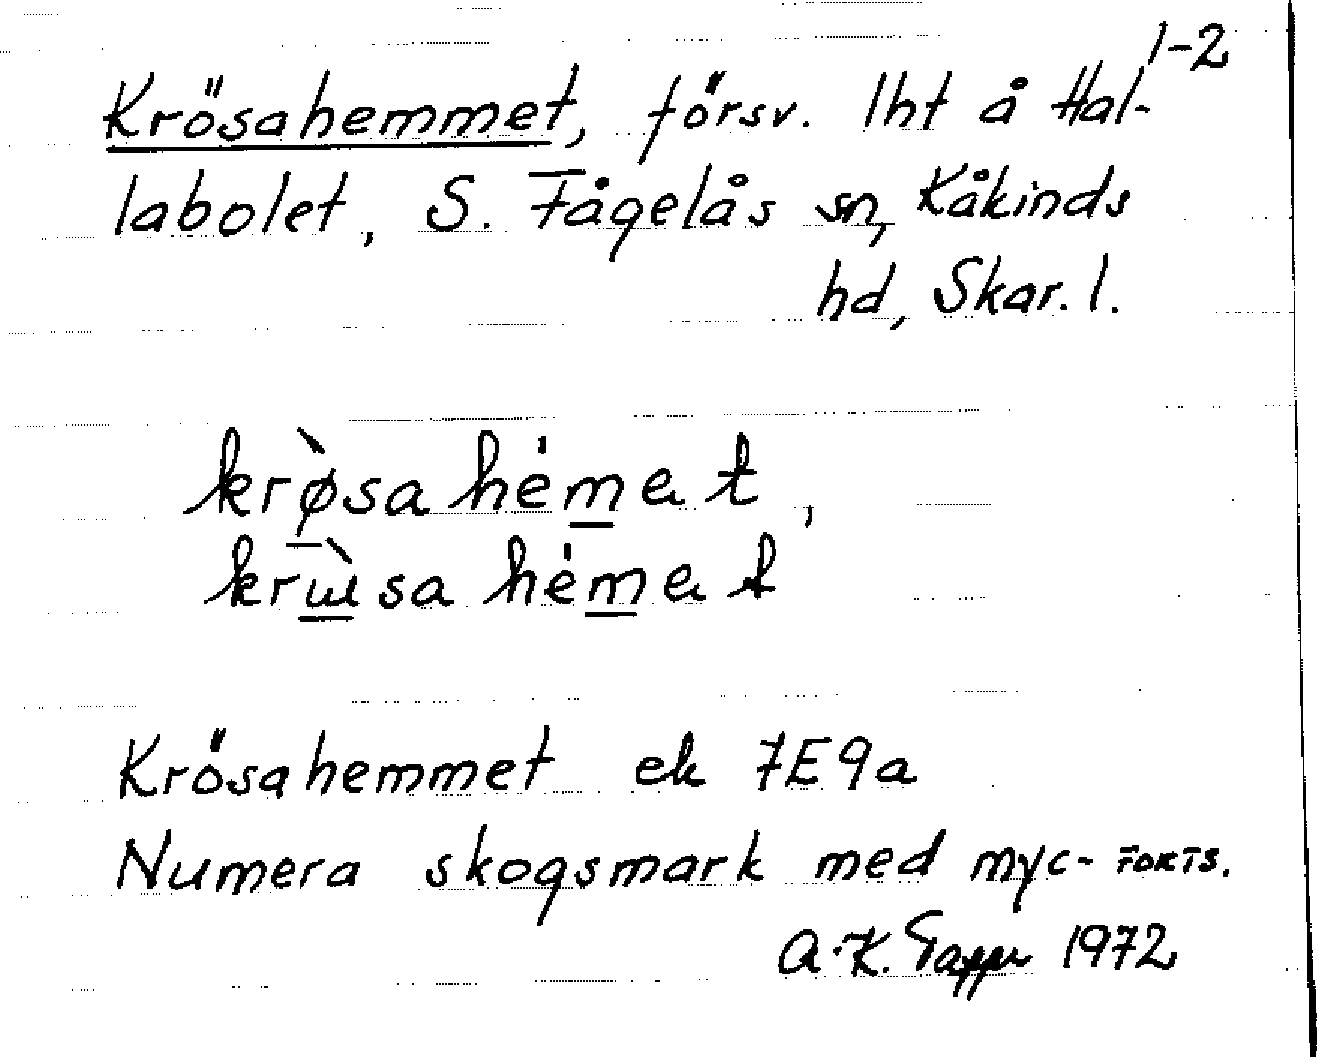 1-2
Krösahemmet, försv. lht å Hal-
labolet, S. Fågelås sn, Kåkinds
hd, Skar. l.
krø̀sa hémat,
krɯ̀sa hémat
Krösahemmet ek 7E9a
Numera skogsmark med myc- FORTS.
A.-K. 1972